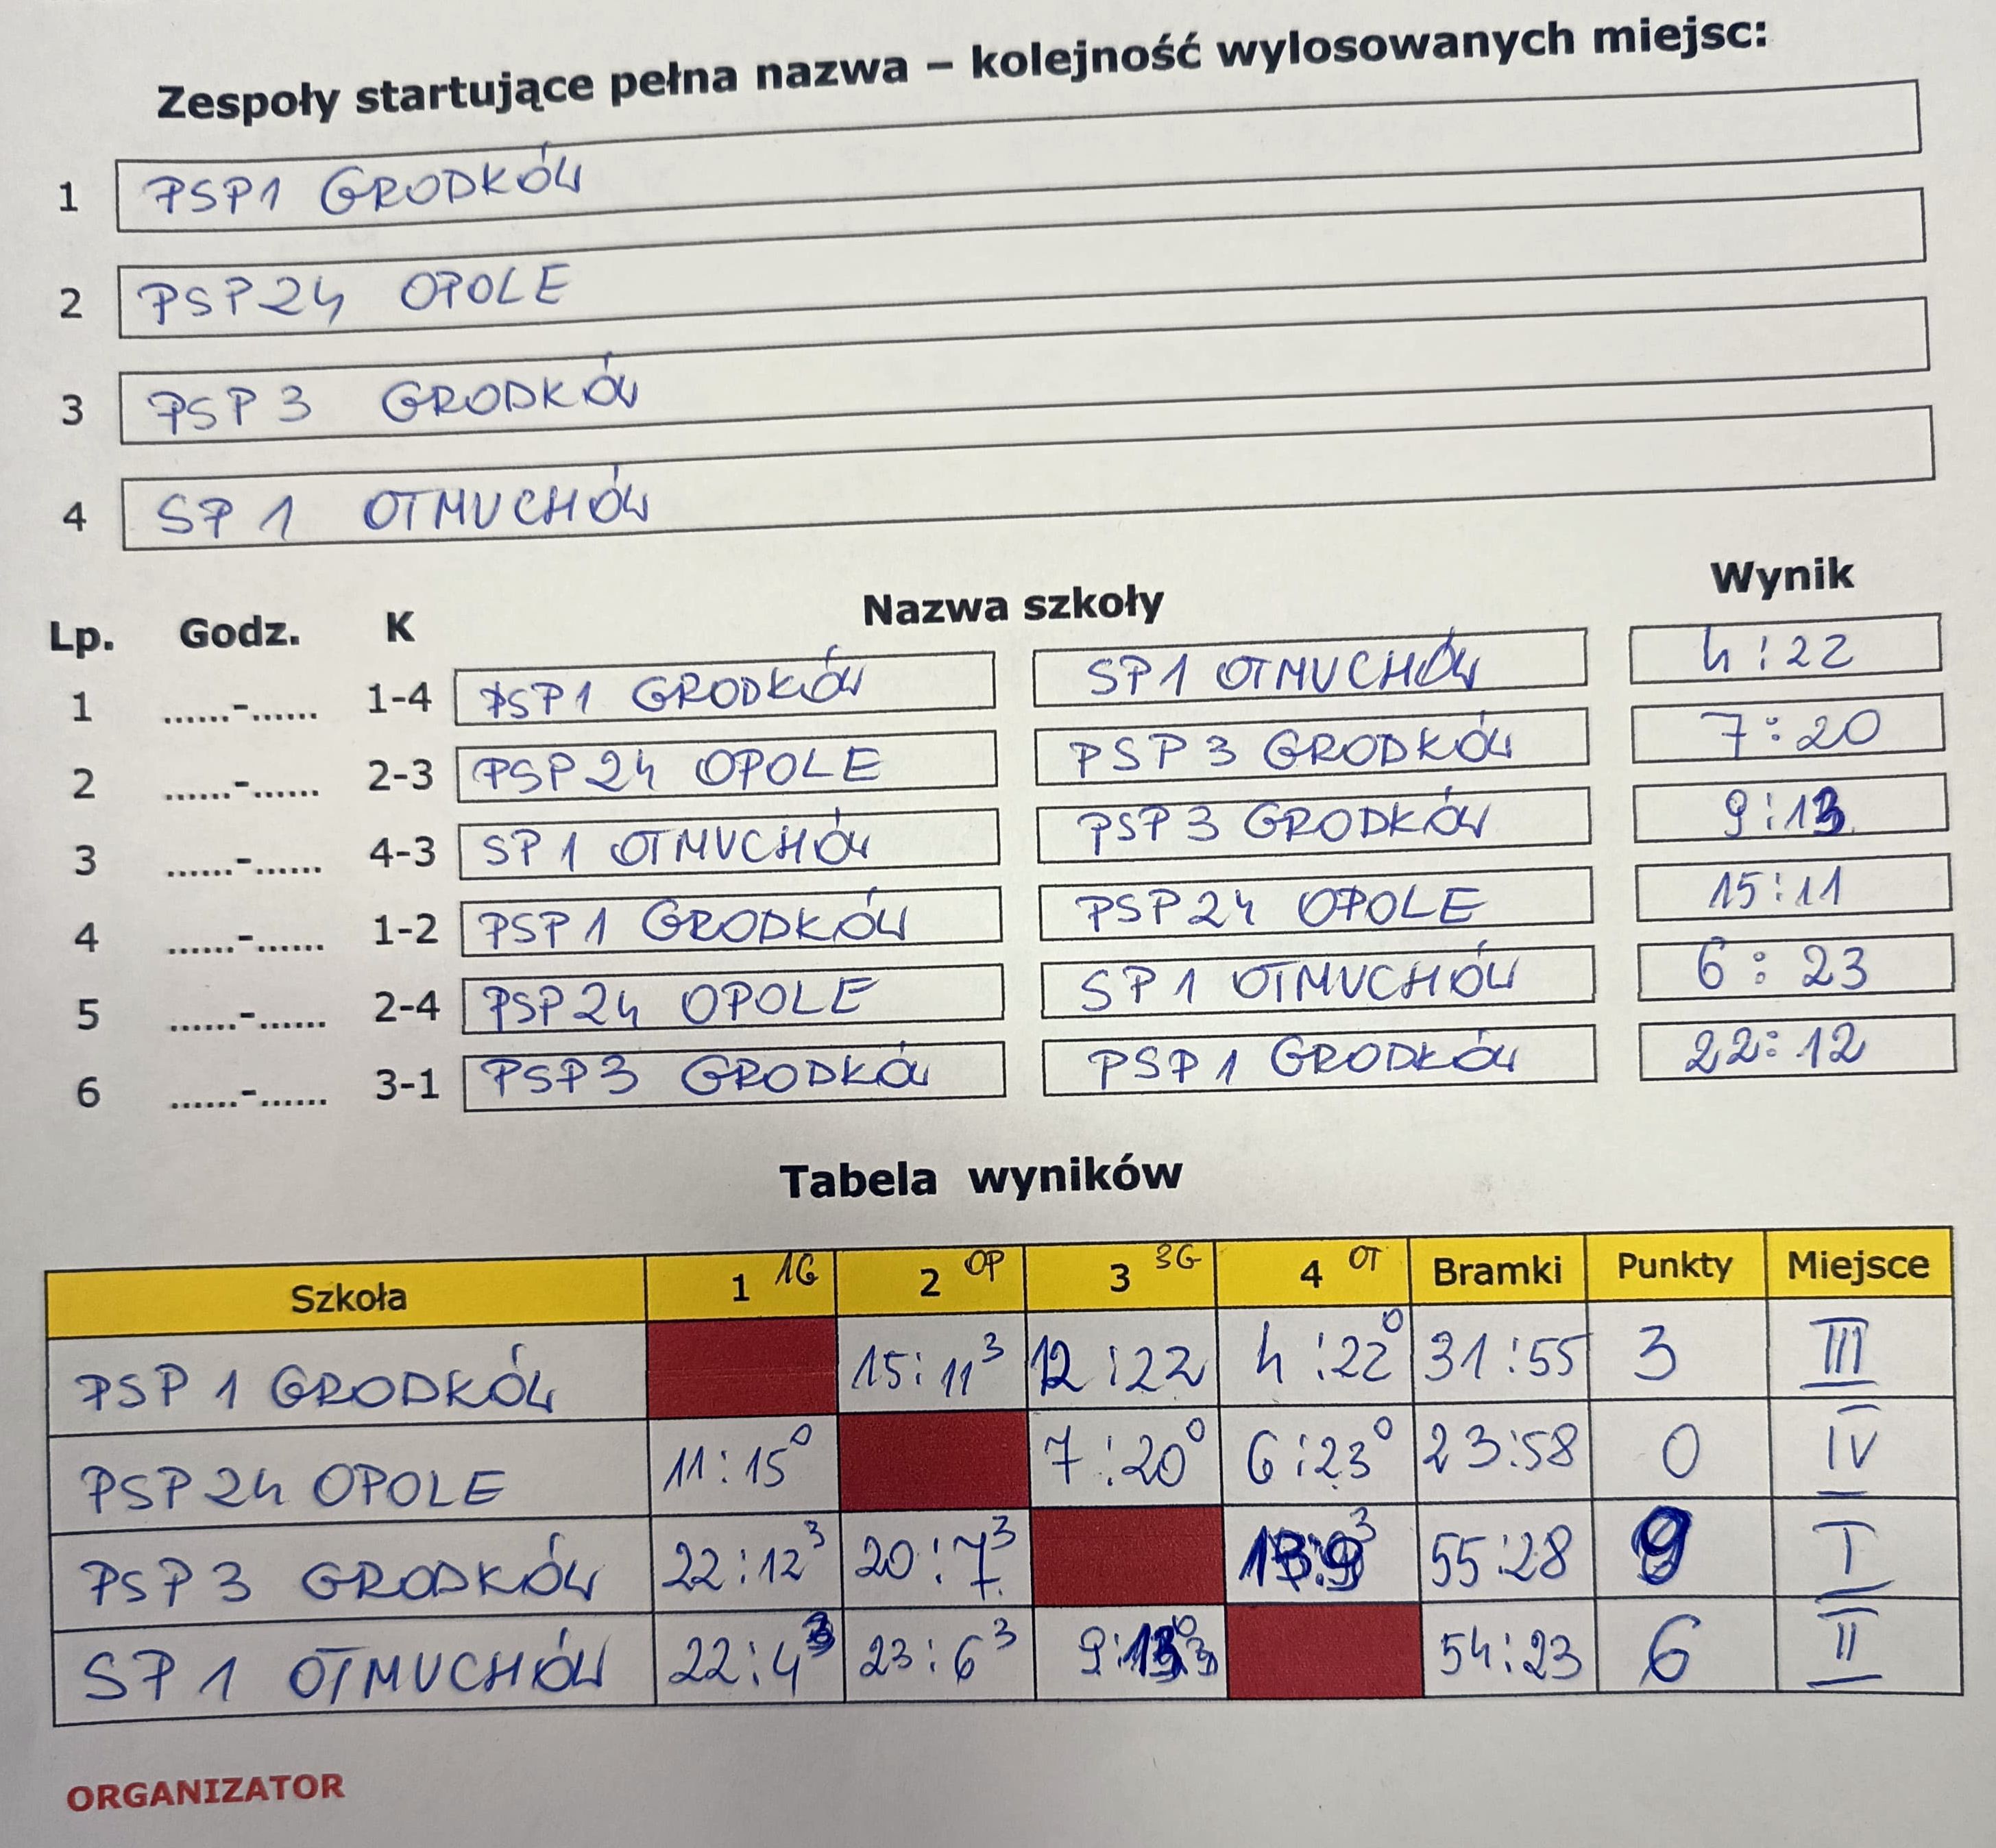 Zespoły startujące pełna nazwa – kolejność wylosowanych miejsc:
1 PSP1 GRODKÓW
2 PSP24 OPOLE
3 PSP 3 GRODKÓW
4 SP 1 OTMUCHÓW
Lp. Godz. K Nazwa szkoły Wynik
1 ......-...... 1-4 PSP1 GRODKÓW SP1 OTMUCHÓW 4:22
2 ......-...... 2-3 PSP 24 OPOLE PSP 3 GRODKÓW 7:20
3 ......-...... 4-3 SP 1 OTMUCHÓW PSP 3 GRODKÓW 9:13
4 ......-...... 1-2 PSP 1 GRODKÓW PSP 24 OPOLE 15:11
5 ......-...... 2-4 PSP 24 OPOLE SP 1 OTMUCHÓW 6:23
6 ......-...... 3-1 PSP3 GRODKÓW PSP 1 GRODKÓW 22:12
Tabela wyników
Szkoła 1 1G 2 OP 3 3G 4 OT Bramki Punkty Miejsce
PSP 1 GRODKÓW 15:11 3 12:22 4:22 0 31:55 3 III
PSP 24 OPOLE 11:15 0 7:20 0 6:23 0 23:58 0 IV
PSP 3 GRODKÓW 22:12 3 20:7 3 13:9 3 55:28 9 I
SP 1 OTMUCHÓW 22:4 3 23:6 3 9:13 0 54:23 6 II
ORGANIZATOR